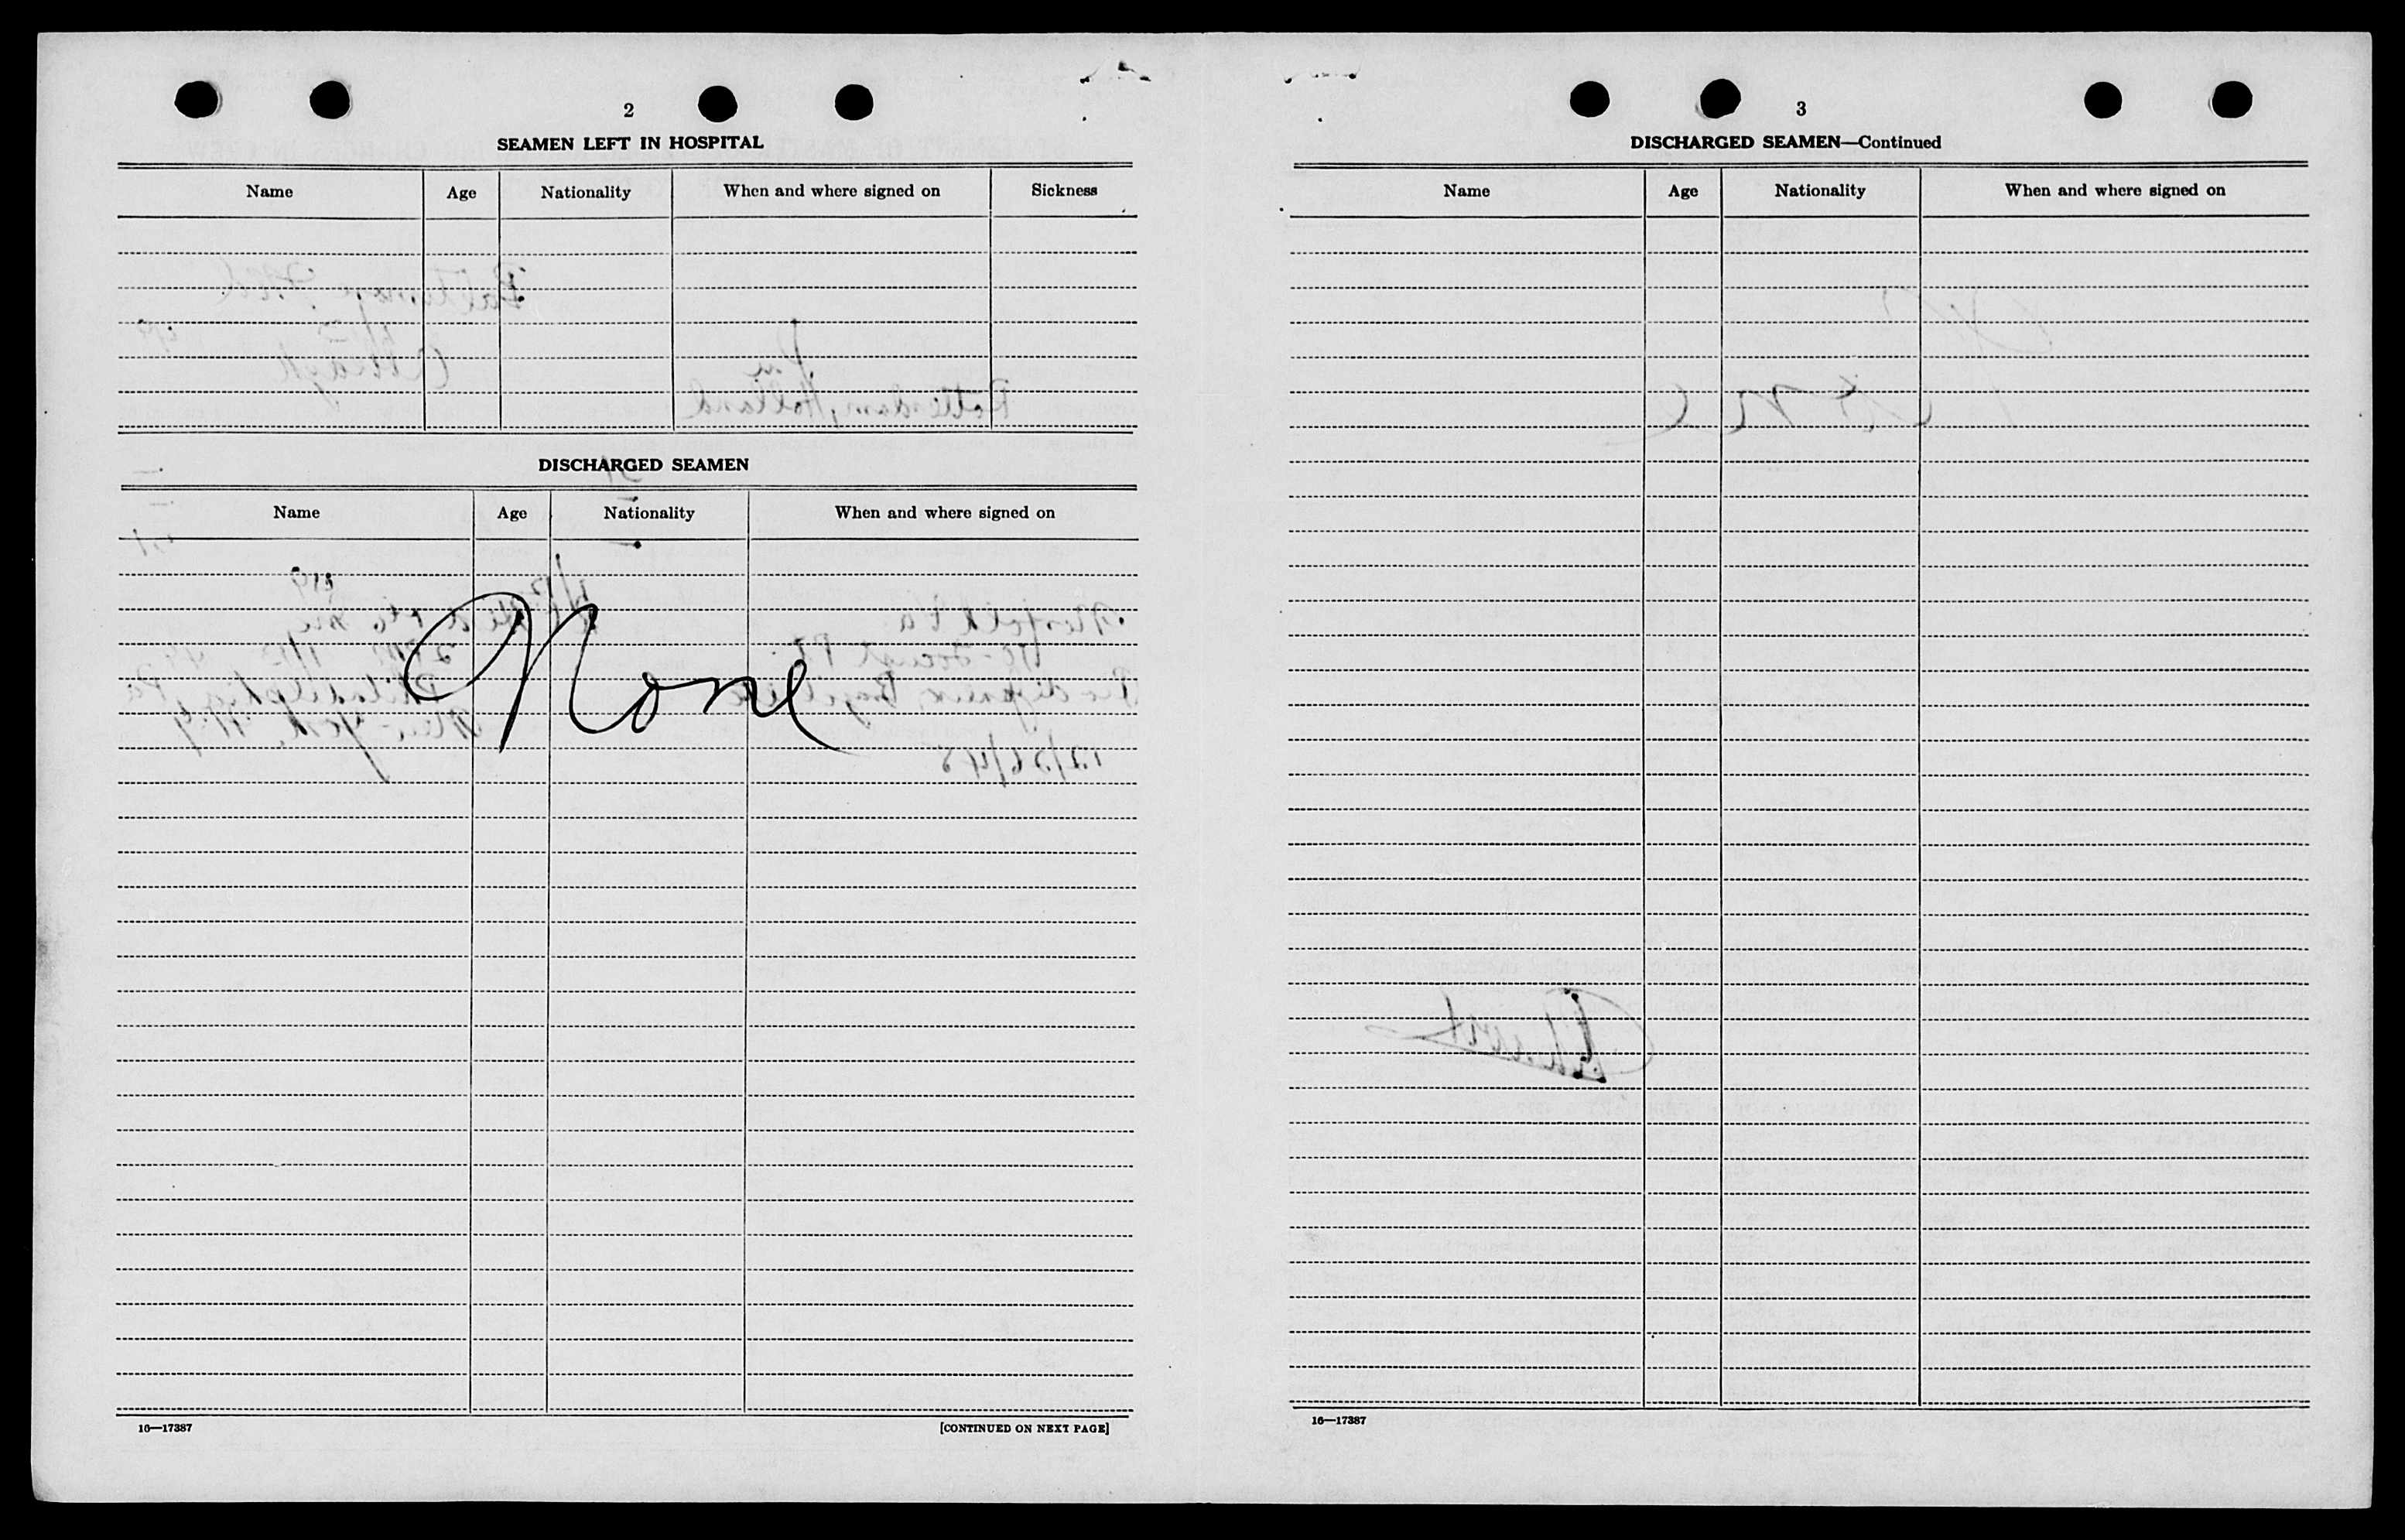 2
SEAMEN LEFT IN HOSPITAL
Name Age Nationality When and where signed on Sickness
Rotterdam, Holland
DISCHARGED SEAMEN
Name Age Nationality When and where signed on
None
Norfolk Va
Philadelphia, Pa
New York, N.Y.
12/26/48
16—17387 [CONTINUED ON NEXT PAGE]
3
DISCHARGED SEAMEN—Continued
Name Age Nationality When and where signed on
None
16—17387